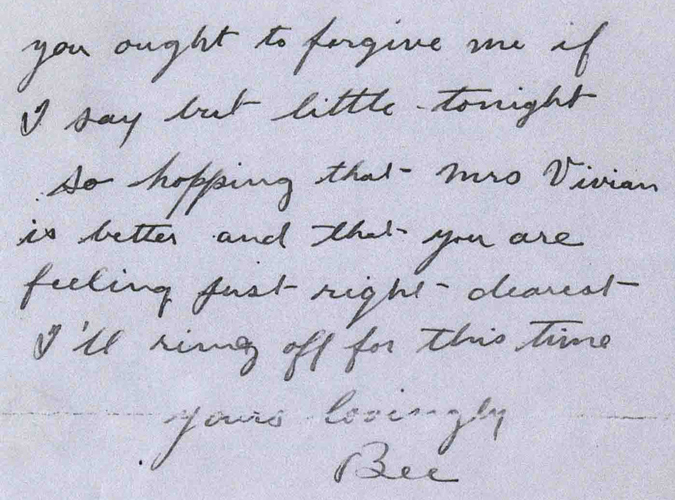 you ought to forgive me if
I say but little tonight
so hopping that Mrs Vivian
is better and that you are
feeling just right dearest
I'll ring off for this time
yours lovingly
Bee